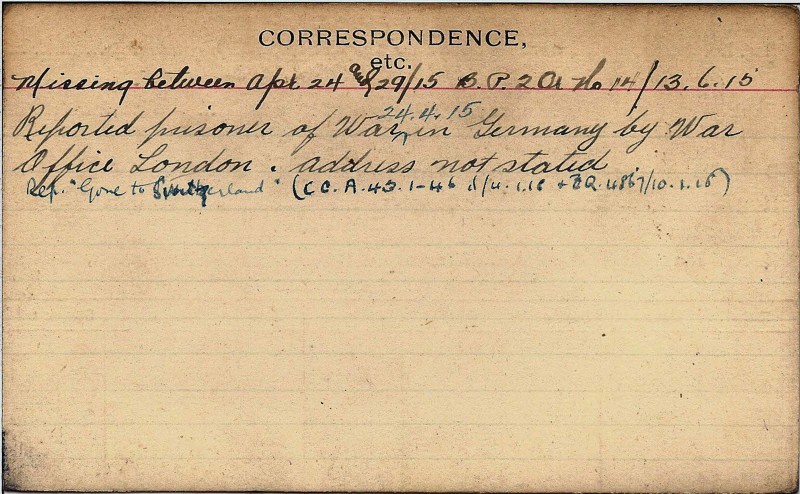 CORRESPONDENCE,
etc.
Missing between Apr 24 and 29/15 B.P. 2 No 14/13.6.15
24.4.15
Reported prisoner of War in Germany by War
Office London. address not stated
Rep. "Gone to Switzerland" (C.C.A. 43.1-46 /4.1.16 + B.Q. 4867/10.1.16)